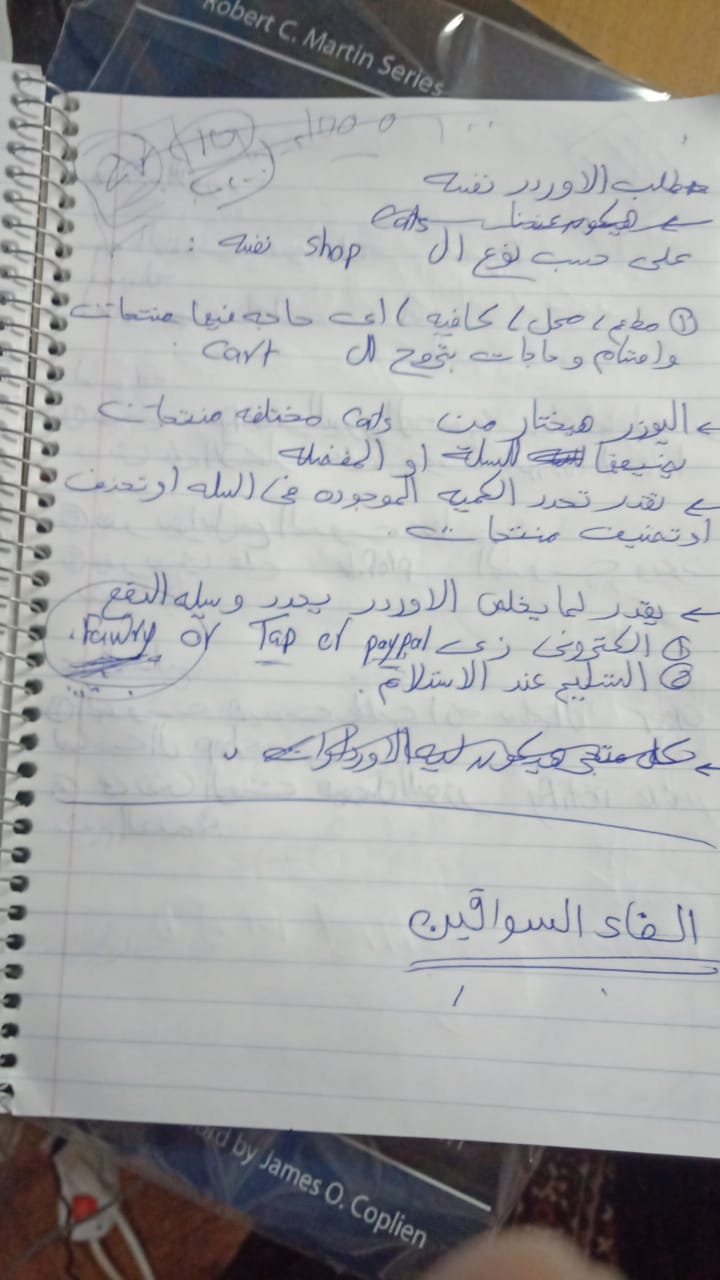 Robert C. Martin Series
1000
طلب الاوردر نفسه
← هيكون عندنا Cats
على حسب نوع ال shop نفسه :
① مطعم / محل / كافيه / اى حاجه فيها منتجات
واقسام وحاجات بتروح ال Cart
← اليوزر هيختار من Cats مختلفه منتجات
يضيفها للسلة او المفضله
← تقدر تحدد الكميه الموجوده فى السله او تحذف
او تضيف منتجات .
← يقدر لما يخلص الاوردر يحدد وسيله الدفع
① الكترونى زى paypal or Tap or Fawry .
② التسليم عند الاستلام .
← كل متجر هيكون ليه الاوردرات
السواقين
by James O. Coplien